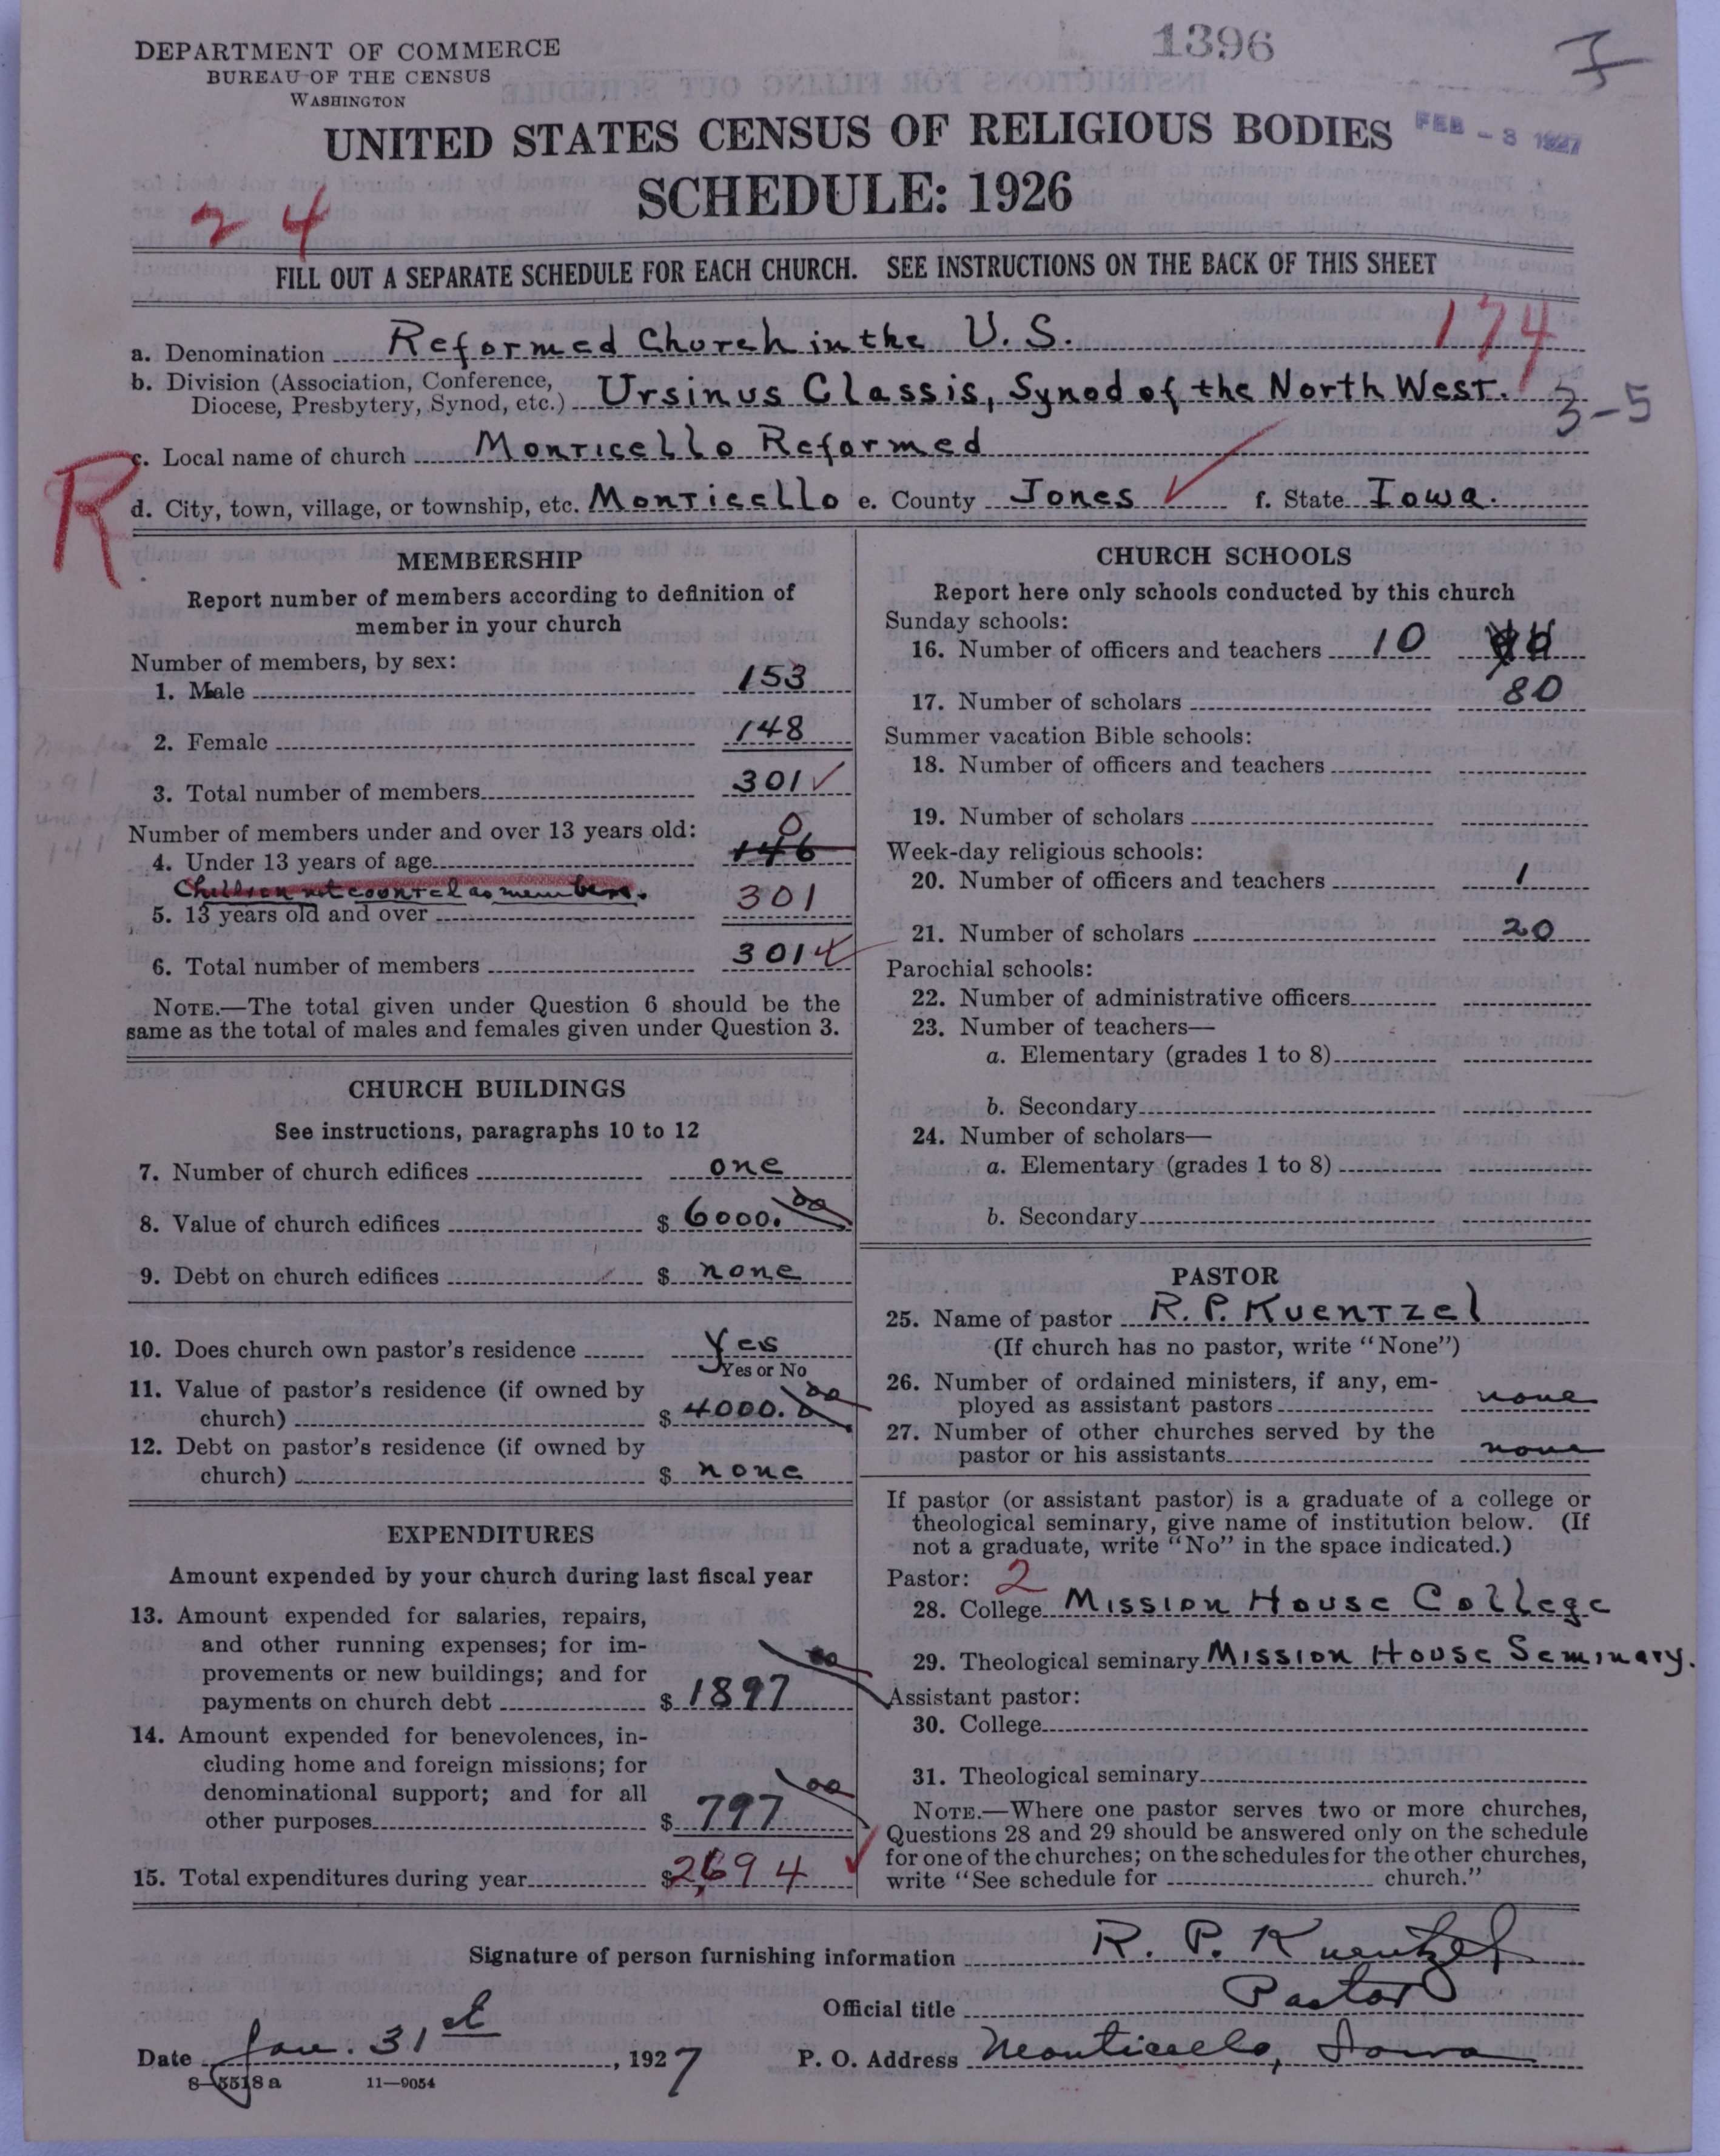 DEPARTMENT OF COMMERCE
BUREAU OF THE CENSUS
WASHINGTON
1396
UNITED STATES CENSUS OF RELIGIOUS BODIES
FEB - 3 1927
SCHEDULE: 1926
24
FILL OUT A SEPARATE SCHEDULE FOR EACH CHURCH. SEE INSTRUCTIONS ON THE BACK OF THIS SHEET
174
a. Denomination Reformed Church in the U.S.
b. Division (Association, Conference, Diocese, Presbytery, Synod, etc.) Ursinus Classis, Synod of the North West.
3-5
R
c. Local name of church Monticello Reformed
d. City, town, village, or township, etc. Monticello e. County Jones f. State Iowa.
MEMBERSHIP
Report number of members according to definition of
member in your church
Number of members, by sex:
1. Male 153
2. Female 148
3. Total number of members 301
Number of members under and over 13 years old:
0
4. Under 13 years of age 146
Children not counted as members.
5. 13 years old and over 301
6. Total number of members 301
NOTE.—The total given under Question 6 should be the
same as the total of males and females given under Question 3.
CHURCH BUILDINGS
See instructions, paragraphs 10 to 12
7. Number of church edifices one
8. Value of church edifices $ 6000.00
9. Debt on church edifices $ none
10. Does church own pastor's residence Yes
Yes or No
11. Value of pastor's residence (if owned by
church) $ 4000.00
12. Debt on pastor's residence (if owned by
church) $ none
EXPENDITURES
Amount expended by your church during last fiscal year
13. Amount expended for salaries, repairs,
and other running expenses; for im-
provements or new buildings; and for
payments on church debt $ 1897 00
14. Amount expended for benevolences, in-
cluding home and foreign missions; for
denominational support; and for all
other purposes $ 797 00
15. Total expenditures during year $ 2,694
CHURCH SCHOOLS
Report here only schools conducted by this church
Sunday schools:
16. Number of officers and teachers 10
17. Number of scholars 80
Summer vacation Bible schools:
18. Number of officers and teachers
19. Number of scholars
Week-day religious schools:
20. Number of officers and teachers 1
21. Number of scholars 20
Parochial schools:
22. Number of administrative officers
23. Number of teachers—
a. Elementary (grades 1 to 8)
b. Secondary
24. Number of scholars—
a. Elementary (grades 1 to 8)
b. Secondary
PASTOR
25. Name of pastor R. P. Kuentzel
(If church has no pastor, write "None")
26. Number of ordained ministers, if any, em-
ployed as assistant pastors none
27. Number of other churches served by the
pastor or his assistants none
If pastor (or assistant pastor) is a graduate of a college or
theological seminary, give name of institution below. (If
not a graduate, write "No" in the space indicated.)
Pastor: 2
28. College Mission House College
29. Theological seminary Mission House Seminary.
Assistant pastor:
30. College
31. Theological seminary
NOTE.—Where one pastor serves two or more churches,
Questions 28 and 29 should be answered only on the schedule
for one of the churches; on the schedules for the other churches,
write "See schedule for church."
Signature of person furnishing information R. P. Kuentzel
Official title Pastor
Date Jan. 31st, 1927 P. O. Address Monticello, Iowa
8—5518 a 11—9054